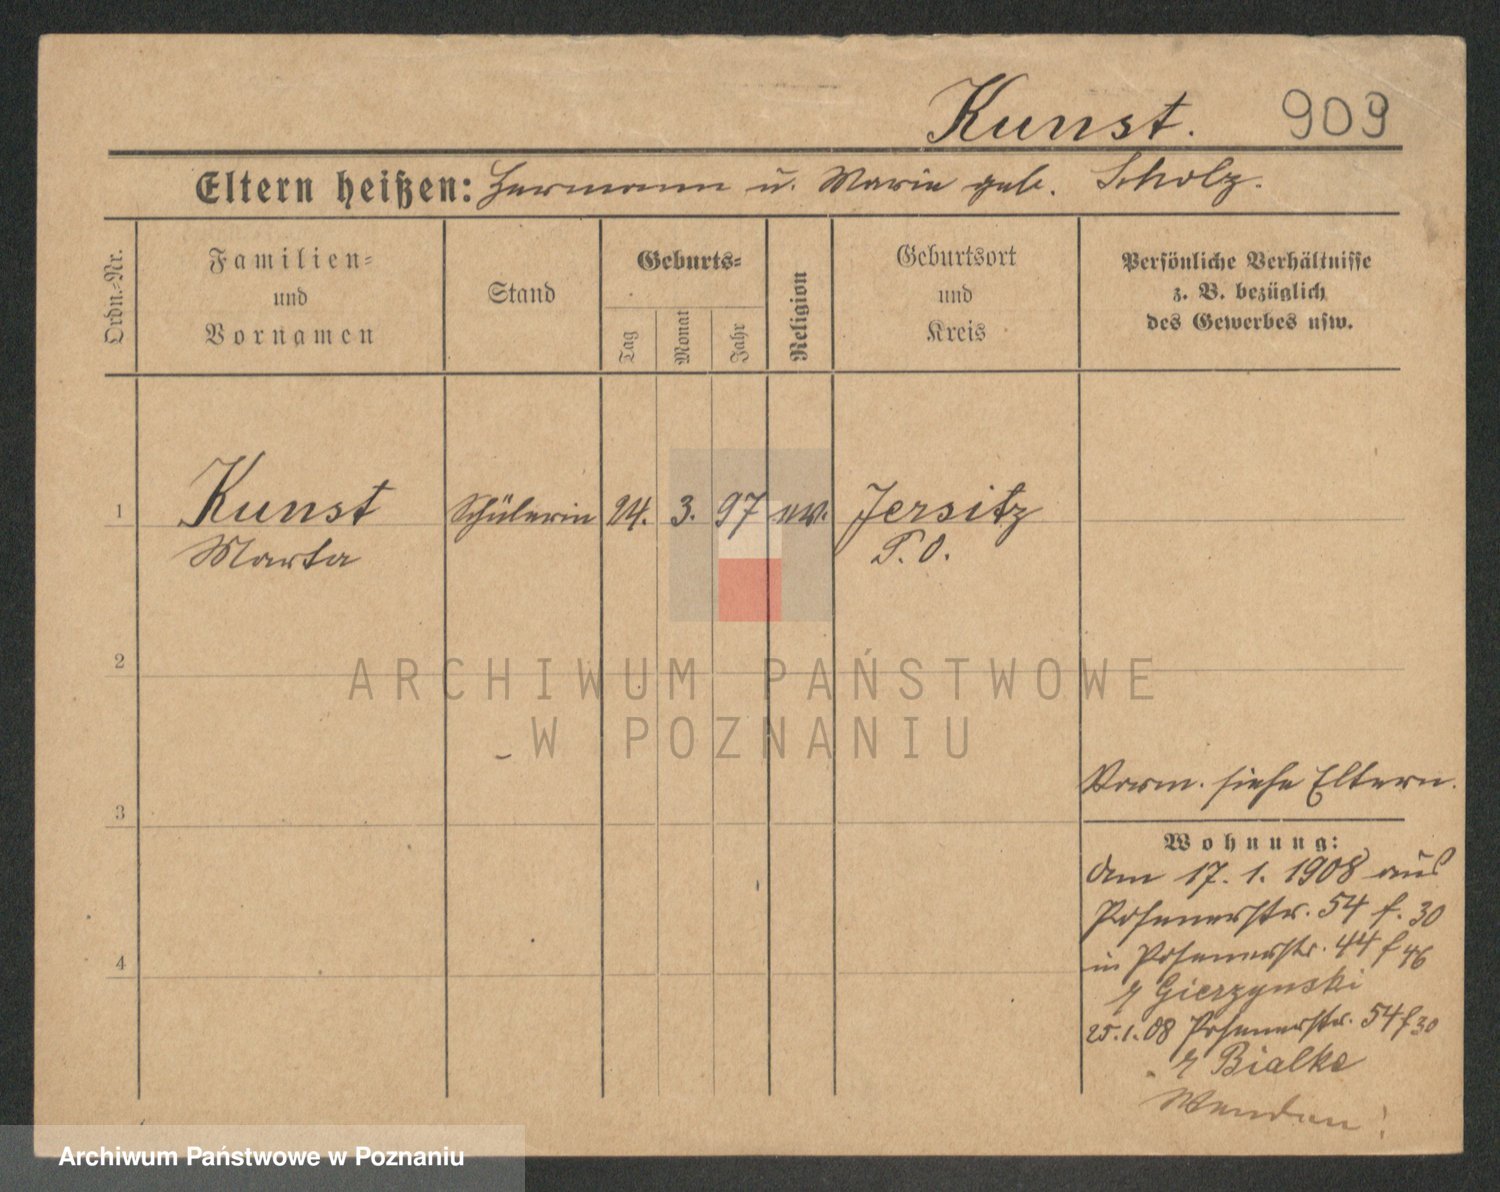 Kunst. 909
Eltern heißen: Hermann u. Marie geb. Scholz.
Ordn.-Nr.
Familien-
und
Vornamen
Stand
Geburts-
Tag
Monat
Jahr
Religion
Geburtsort
und
Kreis
Persönliche Verhältnisse
z. B. bezüglich
des Gewerbes usw.
1 Kunst Schülerin 24. 3. 97 ev. Jersitz
Marta P. O.
2
ARCHIWUM PAŃSTWOWE
W POZNANIU
Verm. siehe Eltern.
3
Wohnung:
Am 17. 1. 1908 aus
Posenerstr. 54 f. 30
in Posenerstr. 44 f 46
Gierzynski
4
25.1.08 Posenerstr. 54 f 30
Bialke
Wenden!
Archiwum Państwowe w Poznaniu